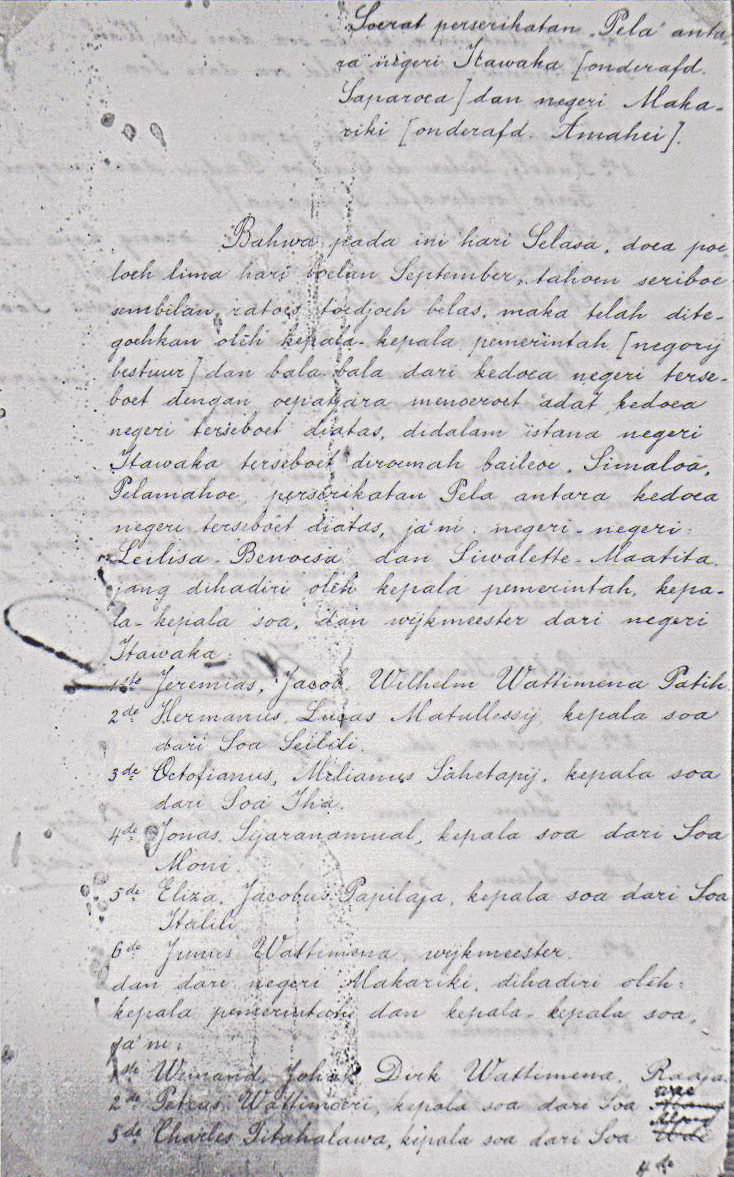 Soerat perserikatan Pela anta-
ra negeri Itawaka [onderafd.
Saparoea] dan negeri Maka-
riki [onderafd. Amahei].
Bahwa pada ini hari Selasa, doea poe-
loeh lima hari boelan September, tahoen seriboe
sembilan ratoes toedjoeh belas, maka telah dite-
goehkan oleh kepala-kepala pemerintah [negorij
bestuur] dan bala bala dari kedoea negeri terse-
boet dengan oepatjara menoeroet adat kedoea
negeri terseboet diatas, didalam istana negeri
Itawaka terseboet diroemah baileoe, Simaloa,
Pelamahoe, perserikatan Pela antara kedoea
negeri terseboet diatas, ja'ni: negeri-negeri:
Leilisa-Benoesa dan Siwalette-Maatita.
jang dihadiri oleh kepala pemerintah, kepa-
la-kepala soa, dan wijkmeester dari negeri
Itawaka:
1ste Jeremias, Jacob, Wilhelm Wattimena Patih
2de Hermanus, Lucas Matullessij, kepala soa
dari Soa Seilili.
3de Octofianus, Milianus Sahetapij, kepala soa
dari Soa Iha.
4de Jonas Sijaranamual, kepala soa dari Soa
Moni.
5de Eliza, Jacobus Papilaja, kepala soa dari Soa
Italili
6de Junus Wattimena, wijkmeester.
dan dari negeri Makariki, dihadiri oleh:
kepala pemerintah dan kepala-kepala soa,
ja'ni:
1ste Weinand, Johan Dirk Wattimena, Radja
2de Petrus Wattimoeri, kepala soa dari Soa
3de Charles Titahalawa, kepala soa dari Soa
4de